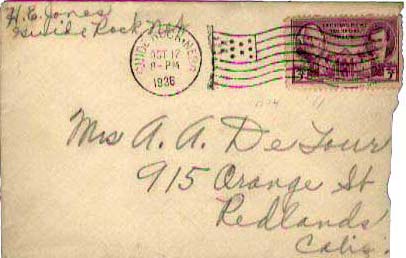 H. E. Jones
Guide Rock Neb
GUIDE ROCK, NEBR.
OCT 12
8-PM
1936
3
Mrs A. A. De Tour
915 Orange St
Redlands
Calif.